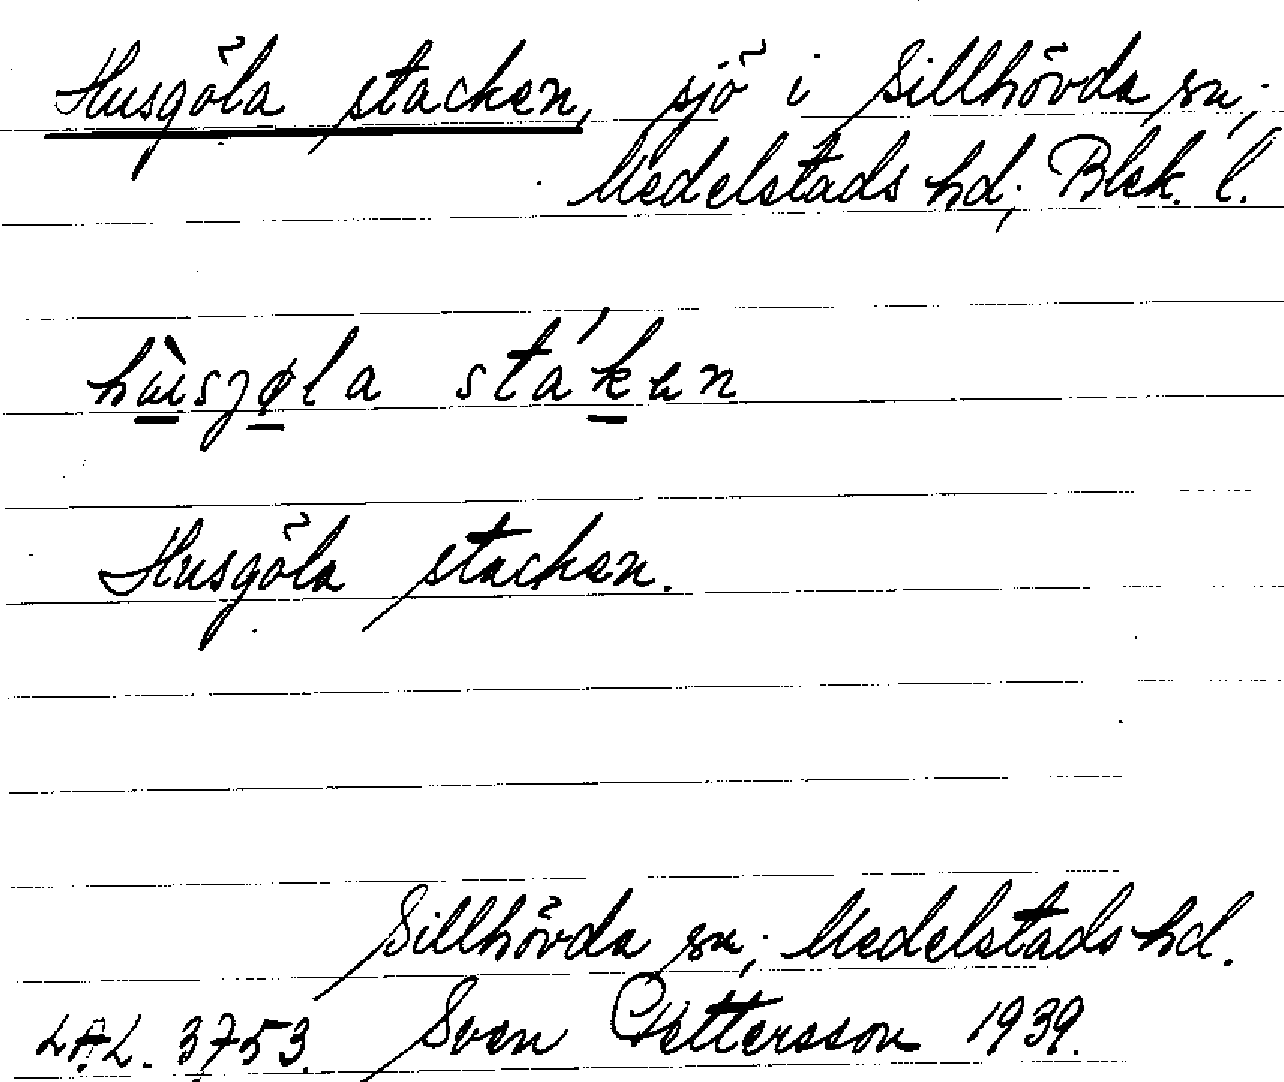 Husgöla stacken, sjö i Sillhövda sn;
Medelstads hd; Blek. l.
hùsgøla stáken
Husgöla stacken.
Sillhövda sn; Medelstads hd.
L.A.L. 3753. Sven Pettersson 1939.